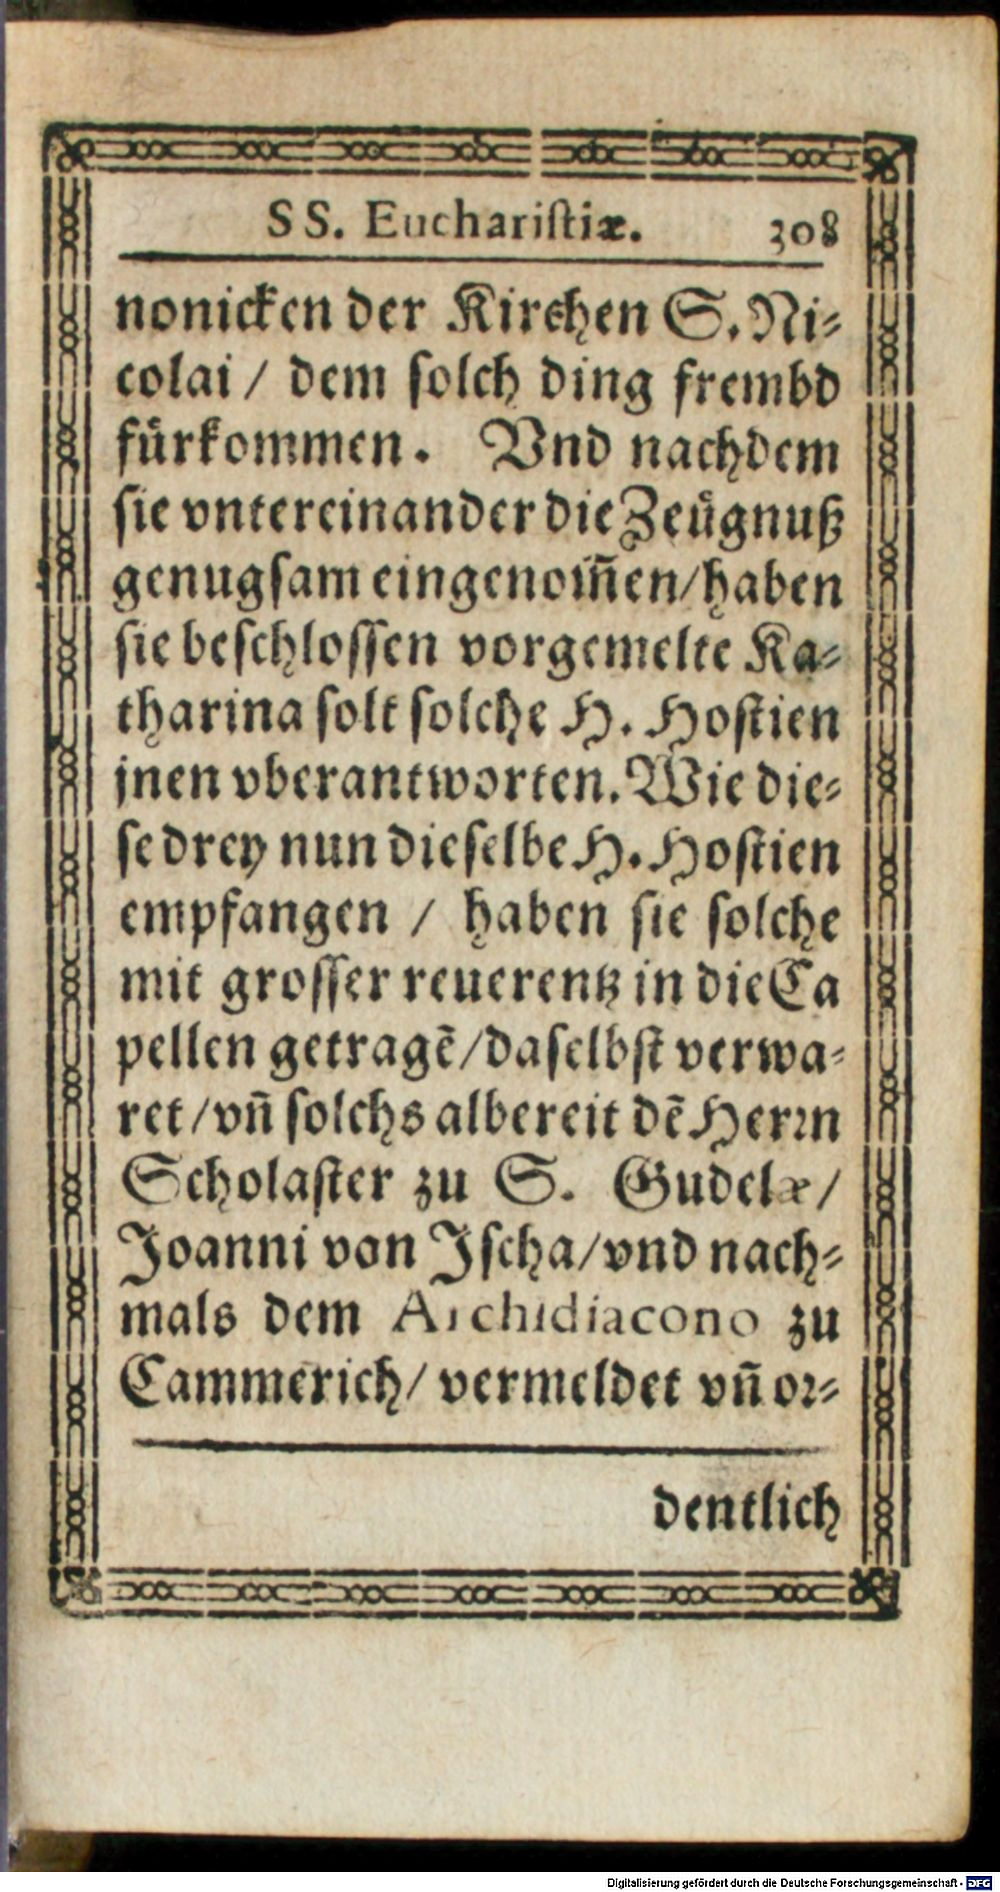 SS. Euchariſtiæ. 308
nonicken der Kirchen S. Ni⸗
colai / dem ſolch ding frembd
fürkommen. Vnd nachdem
ſie vntereinander die Zeügnuß
genugſam eingenom̃en/haben
ſie beſchloſſen vorgemelte Ka⸗
tharina ſolt ſolche H. Hoſtien
jnen vberantworten. Wie die⸗
ſe drey nun dieſelbe H. Hoſtien
empfangen / haben ſie ſolche
mit groſſer reuerentz in die Ca
pellen getragẽ/daſelbſt verwa⸗
ret/vñ ſolchs albereit dẽ Herꝛn
Scholaſter zu S. Gudelæ/
Joanni von Jſcha/vnd nach⸗
mals dem Archidiacono zu
Cammerich/ vermeldet vñ oꝛ⸗
dentlich
Digitalisierung gefördert durch die Deutsche Forschungsgemeinschaft - DFG